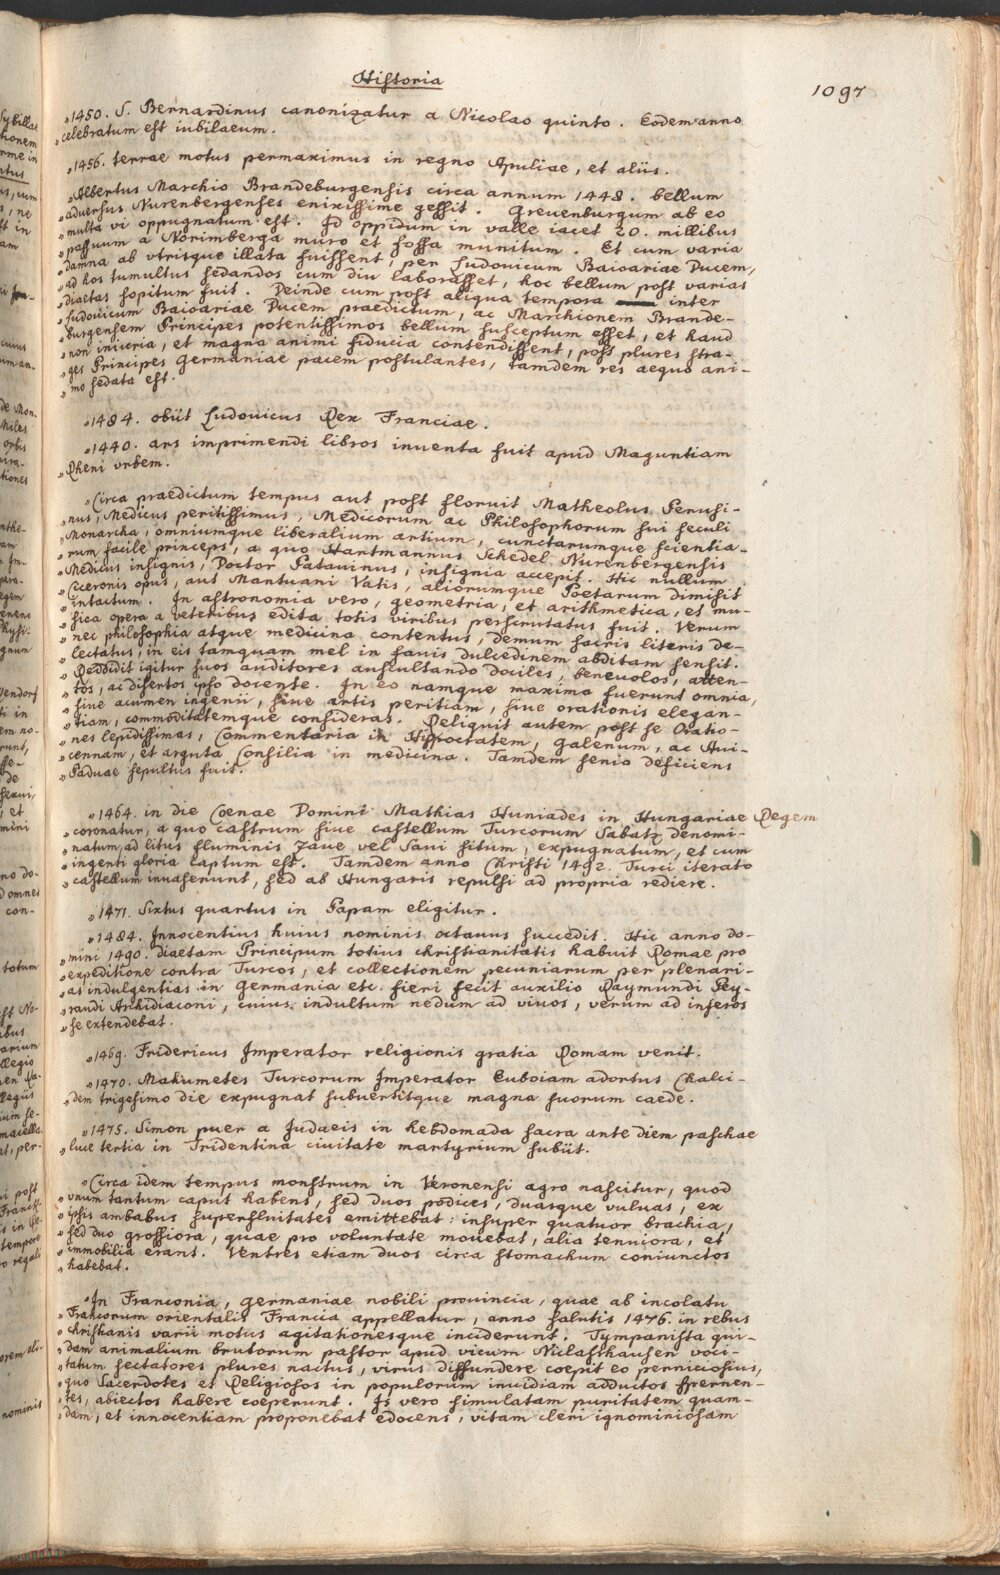 Historia
1097
„1450. S. Bernardinus canonizatur a Nicolao quinto. Eodem anno
„celebratum est iubilaeum.
„1456. terrae motus permaximus in regno Apuliae, et aliis.
„Albertus Marchio Brandeburgensis circa annum 1448. bellum
„aduersus Nurenbergenses enixissime gessit. Greuenburgum ab eo
„multa vi oppugnatum est. Id oppidum in valle iacet 20. millibus
„passuum a Norimberga muro et fossa munitum. Et cum varia
„damna ab vtrisque illata fuissent, per Ludouicum Baioariae Ducem,
„ad hos tumultus sedandos cum diu laborasset, hoc bellum post varias
„diaetas sopitum fuit. Deinde cum post aliqua tempora inter
„Ludouicum Baioariae Ducem praedictum, ac Marchionem Brande-
„burgensem Principes potentissimos bellum susceptum esset, et haud
„non iniuria, et magna animi fiducia contendissent, post plures stra-
„ges Principes Germaniae pacem postulantes, tamdem res aequo ani-
„mo sedata est.
„1484. obiit Ludouicus Rex Franciae.
„1440. ars imprimendi libros inuenta fuit apud Maguntiam
„Rheni vrbem.
„Circa praedictum tempus aut post floruit Matheolus Perusi-
„nus, Medicus peritissimus, Medicorum ac Philosophorum sui seculi
„Monarcha, omniumque liberalium artium, cunctarumque scientia-
„rum facile princeps, a quo Hartmannus Schedel Nurenbergensis
„Medicus insignis, Doctor Patauinus, insignia accepit. Hic nullum
„Ciceronis opus, aut Mantuani Vatis, aliorumque Poetarum dimisit
„intactum. In astronomia vero, geometria, et arithmetica, et mu-
„sica opera a veteribus edita totis viribus perscrutatus fuit. Verum
„nec philosophia atque medicina contentus, demum sacris literis de-
„lectatus, in eis tamquam mel in fauis dulcedinem abditam sensit.
„Reddidit igitur suos auditores auscultando dociles, beneuolos, atten-
„tos, ac disertos ipso docente. In eo namque maxima fuerunt omnia,
„siue acumen ingenii, siue artis peritiam, siue orationis elegan-
„tiam, commoditatemque consideras. Reliquit autem post se Oratio-
„nes lepidissimas, Commentaria in Hippocratem, Galenum, ac Aui-
„cennam, et arguta Consilia in medicina. Tamdem senio deficiens
„Paduae sepultus fuit.
„1464. in die Coenae Domini Mathias Huniades in Hungariae Regem
„coronatur, a quo castrum siue castellum Turcorum Sabatz denomi-
„natum, ad litus fluminis Zaue vel Saui situm, expugnatum, et cum
„ingenti gloria captum est. Tamdem anno Christi 1492. Turci iterato
„castellum inuaserunt, sed ab Hungaris repulsi ad propria rediere.
„1471. Sixtus quartus in Papam eligitur.
„1484. Innocentius huius nominis octauus succedit. Hic anno do-
„mini 1490. diaetam Principum totius christianitatis habuit Romae pro
„expeditione contra Turcos, et collectionem pecuniarum per plenari-
„as indulgentias in Germania etc. fieri fecit auxilio Raymundi Pey-
„raudi Archidiaconi, cuius indultum nedum ad viuos, verum ad inferos
„se extendebat.
„1469. Fridericus Imperator religionis gratia Romam venit.
„1470. Mahumetes Turcorum Imperator Euboiam adortus Chalci-
„dem trigesimo die expugnat subuertitque magna suorum caede.
„1475. Simon puer a Judaeis in hebdomada sacra ante diem paschae
„luce tertia in Tridentina ciuitate martyrium subiit.
„Circa idem tempus monstrum in Veronensi agro nascitur, quod
„vnum tantum caput habens, sed duos podices, duasque vuluas, ex
„ipsis ambabus superfluitates emittebat: insuper quatuor brachia,
„sed duo grossiora, quae pro voluntate mouebat, alia tenuiora, et
„immobilia erant. Ventres etiam duos circa stomachum coniunctos
„habebat.
„In Franconia, Germaniae nobili prouincia, quae ab incolatu
„Francorum orientalis Francia appellatur, anno salutis 1476. in rebus
„christianis varii motus agitationesque inciderunt. Tympanista qui-
„dam animalium brutorum pastor apud vicum Niclasshausen voci-
„tatum sectatores plures nactus, virus diffundere coepit eo perniciosius,
„quo Sacerdotes et Religiosos in populorum inuidiam adductos spernen-
„tes, abiectos habere coeperunt. Is vero simulatam puritatem quam-
„dam, et innocentiam proponebat edocens, vitam cleri ignominiosam